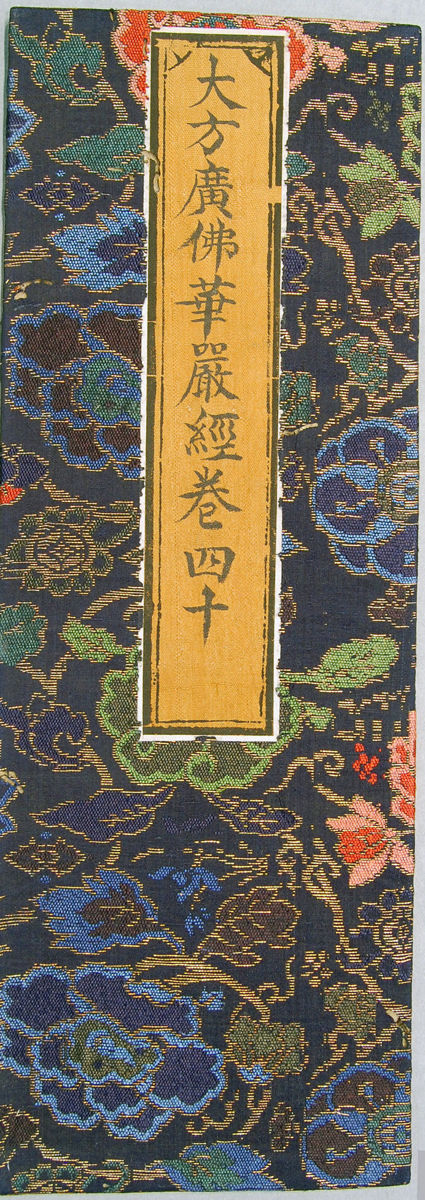 大方廣佛華嚴經卷四十